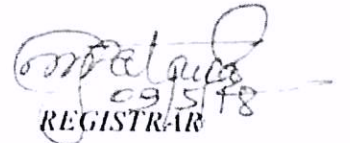 09/5/18
REGISTRAR